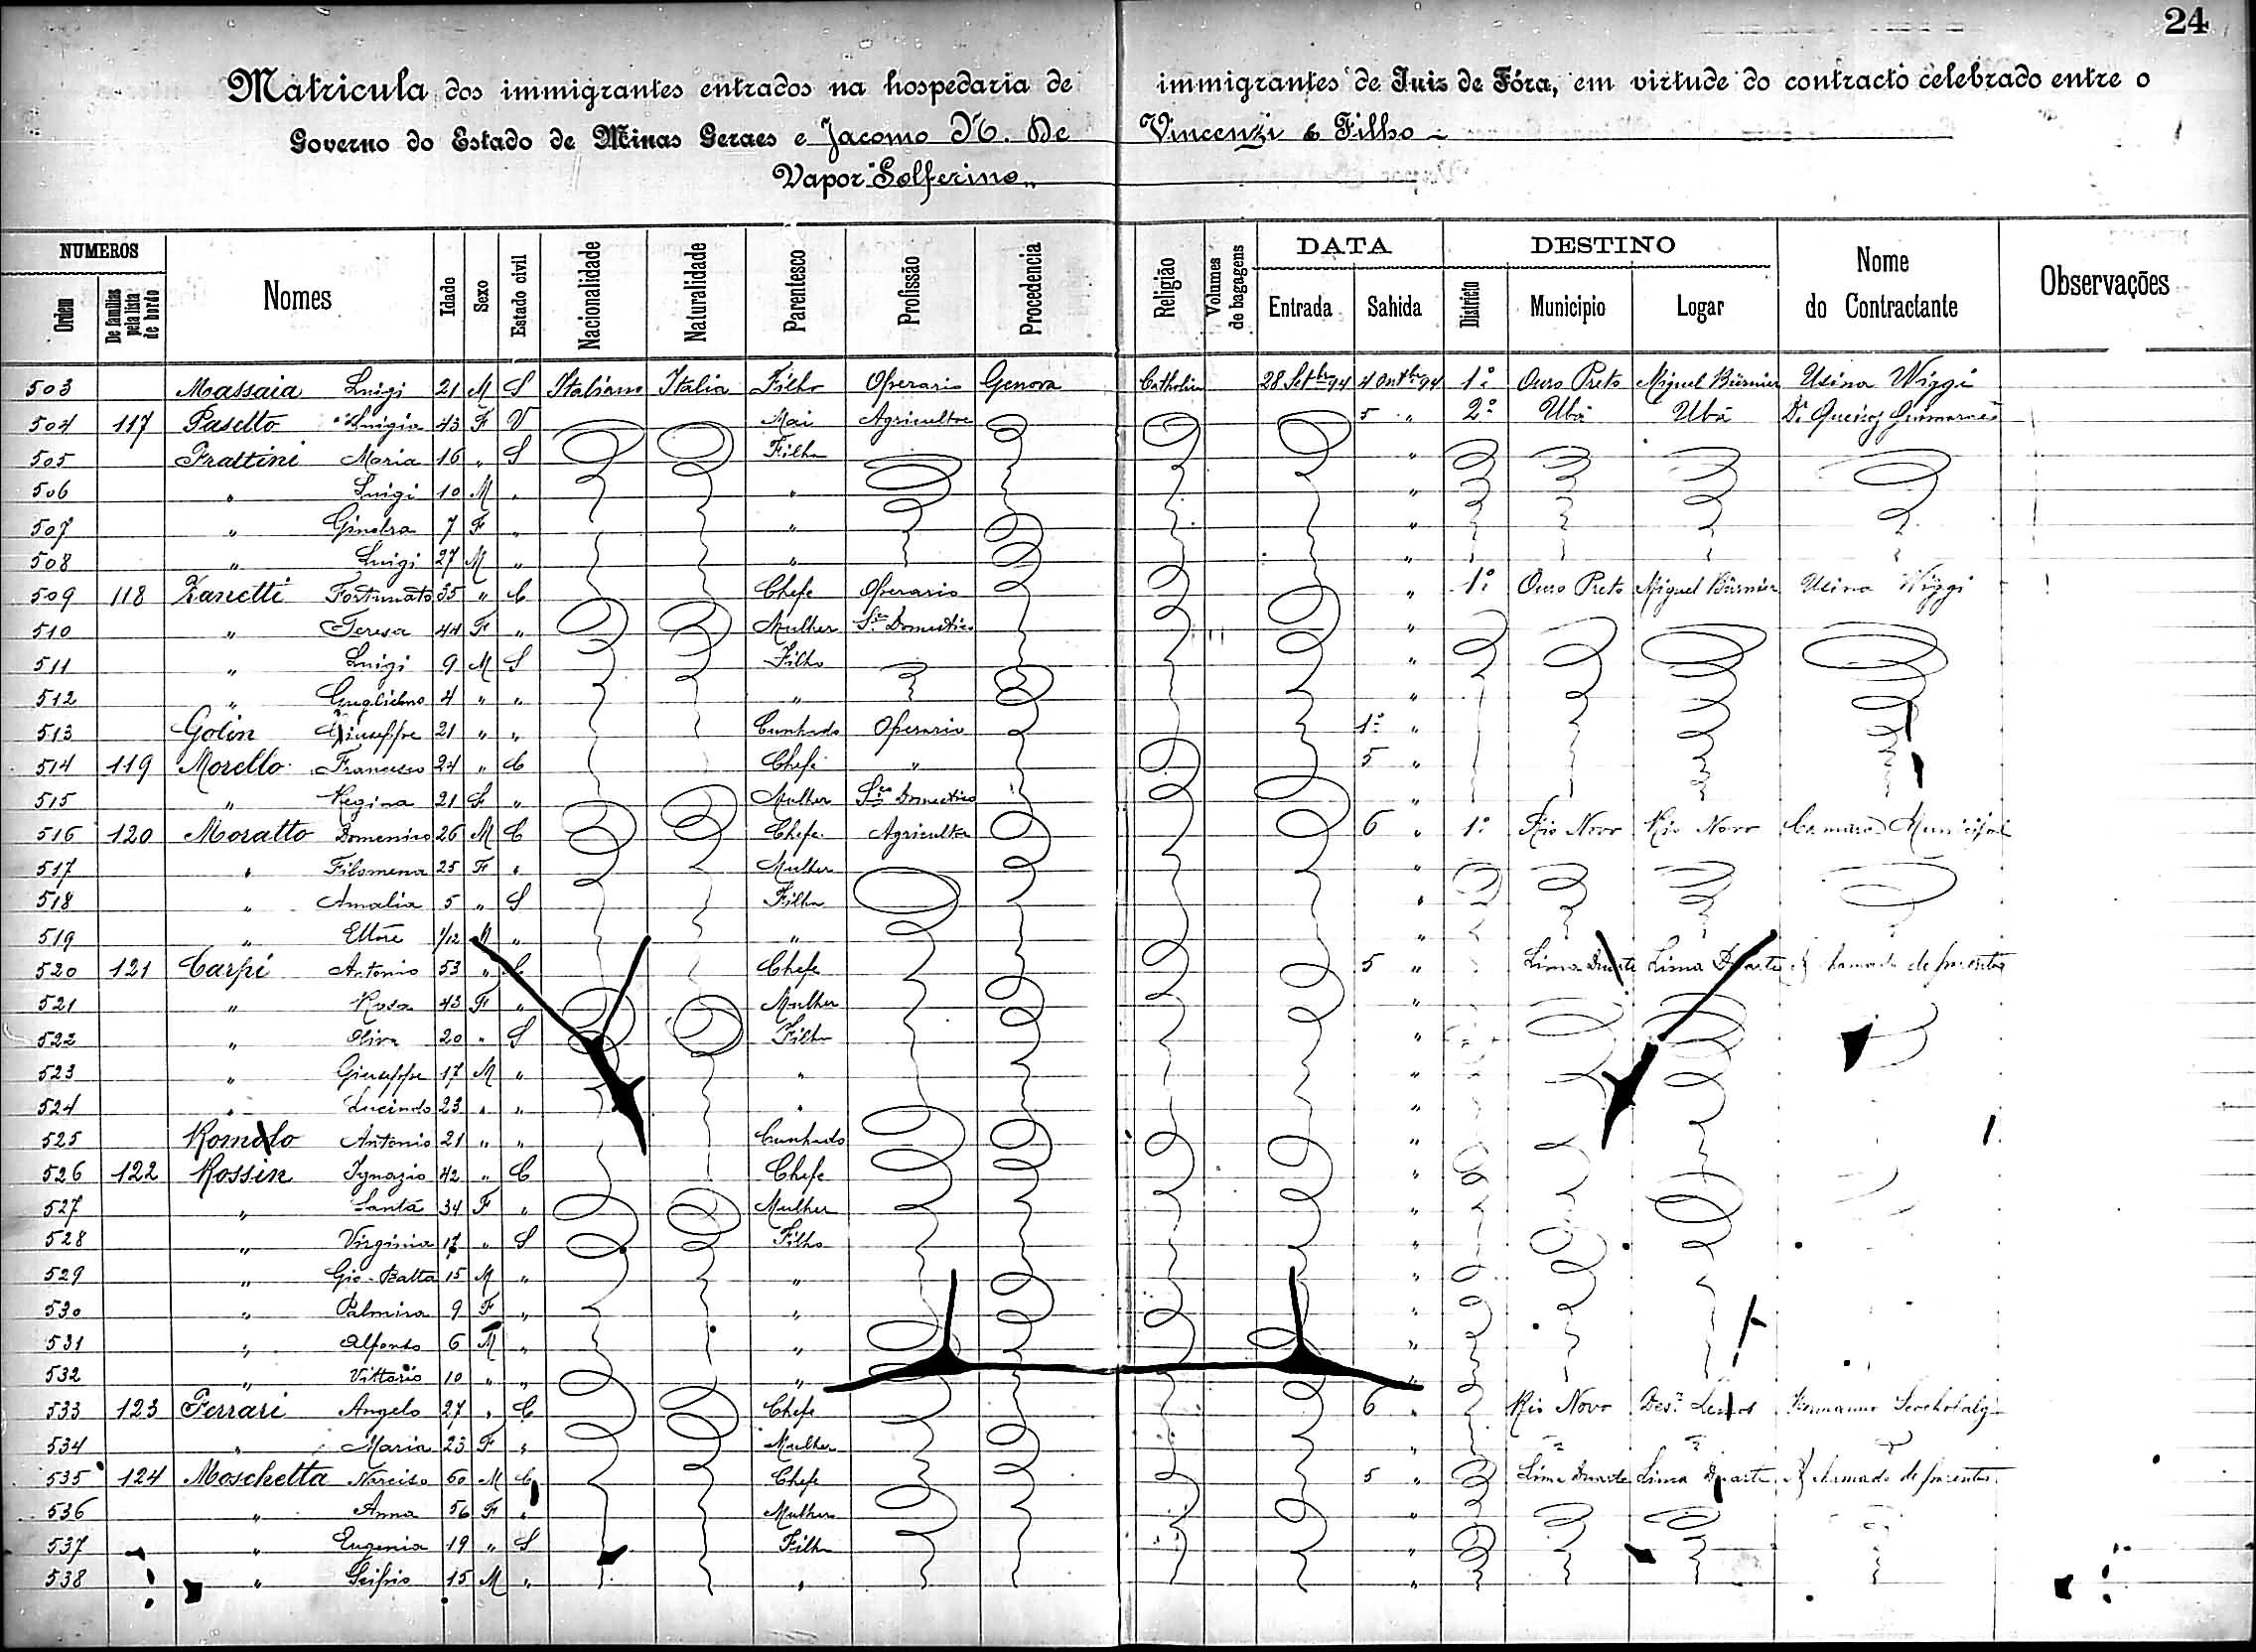 24
Matricula dos immigrantes entrados na hospedaria de immigrantes de Juiz de Fóra, em virtude do contracto celebrado entre o
Governo do Estado de Minas Geraes e Jacomo N. De Vincenzi & Filho
Vapor "Solferino"
NUMEROS Nomes Idade Sexo Estado civil Nacionalidade Naturalidade Parentesco Profissão Procedencia Religião Volumes de bagagens DATA DESTINO Nome do Contractante Observações
Ordem De familias pela lista de bordo Entrada Sahida Districto Municipio Logar
503 Massaia Luigi 21 M S Italiano Italia Filho Operario Genova Catholica 28 Setbr 94 4 Outbr 94 1º Ouro Preto Miguel Burnier Usina Wiggi
504 117 Pasetto Luigia 43 F V Mai Agricultor 5 " 2º Ubá Ubá Dr Queiroz Guimarães
505 Frattini Maria 16 " S Filha "
506 " Luigi 10 M " " "
507 " Ginebra 7 F " " "
508 " Luigi 27 M " " "
509 118 Zanetti Fortunato 35 " C Chefe Operario " 1º Ouro Preto Miguel Burnier Usina Wiggi
510 " Teresa 44 F " Mulher Sço Domestico "
511 " Luigi 9 M S Filho "
512 " Guglielmo 4 " " " "
513 Golin Giuseppe 21 " " Cunhado Operario 1º "
514 119 Morello Francesco 24 " C Chefe " 5 "
515 " Regina 21 F " Mulher Sço Domestico "
516 120 Moratto Domenico 26 M C Chefe Agricultor 6 " 1º Rio Novo Rio Novo Camara Municipal
517 " Filomena 25 F " Mulher "
518 " Amalia 5 " S Filha "
519 " Ettore 1/12 M " " "
520 121 Carpi Antonio 53 " C Chefe 5 " Lima Duarte Lima Duarte A chamado de parentes
521 " Rosa 43 F " Mulher "
522 " Oliva 20 " S Filha "
523 " Giuseppe 17 M " " "
524 " Lucindo 23 " " " "
525 Romolo Antonio 21 " " Cunhado "
526 122 Rossin Ignazio 42 " C Chefe "
527 " Santa 34 F " Mulher "
528 " Virginia 17 " S Filha "
529 " Gio-Batta 15 M " " "
530 " Palmira 9 F " " "
531 " Alfonso 6 M " " "
532 " Vittorio 10 " " " "
533 123 Ferrari Angelo 27 " C Chefe 6 " Rio Novo
534 " Maria 23 F " Mulher "
535 124 Moschetta Narciso 60 M C Chefe 5 " Lima Duarte Lima Duarte A chamado de parentes
536 " Anna 56 F " Mulher "
537 " Eugenia 19 " S Filha "
538 " 15 M " " "